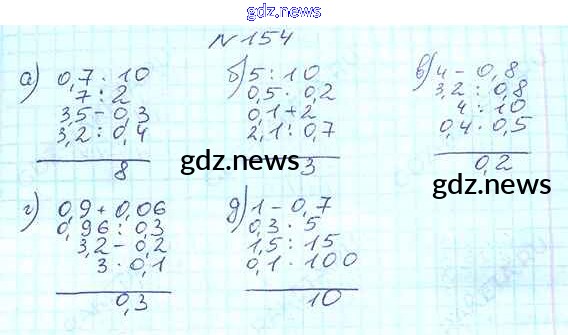 gdz.news
N 154
а) 0,7 : 10
7 : 2
3,5 - 0,3
3,2 : 0,4
8
б) 5 : 10
0,5 · 0,2
0,1 + 2
2,1 : 0,7
3
в) 4 - 0,8
3,2 : 0,8
4 : 10
0,4 · 0,5
0,2
gdz.news
gdz.news
г) 0,9 + 0,06
0,96 : 0,3
3,2 - 0,2
3 · 0,1
0,3
д) 1 - 0,7
0,3 · 5
1,5 : 15
0,1 · 100
10